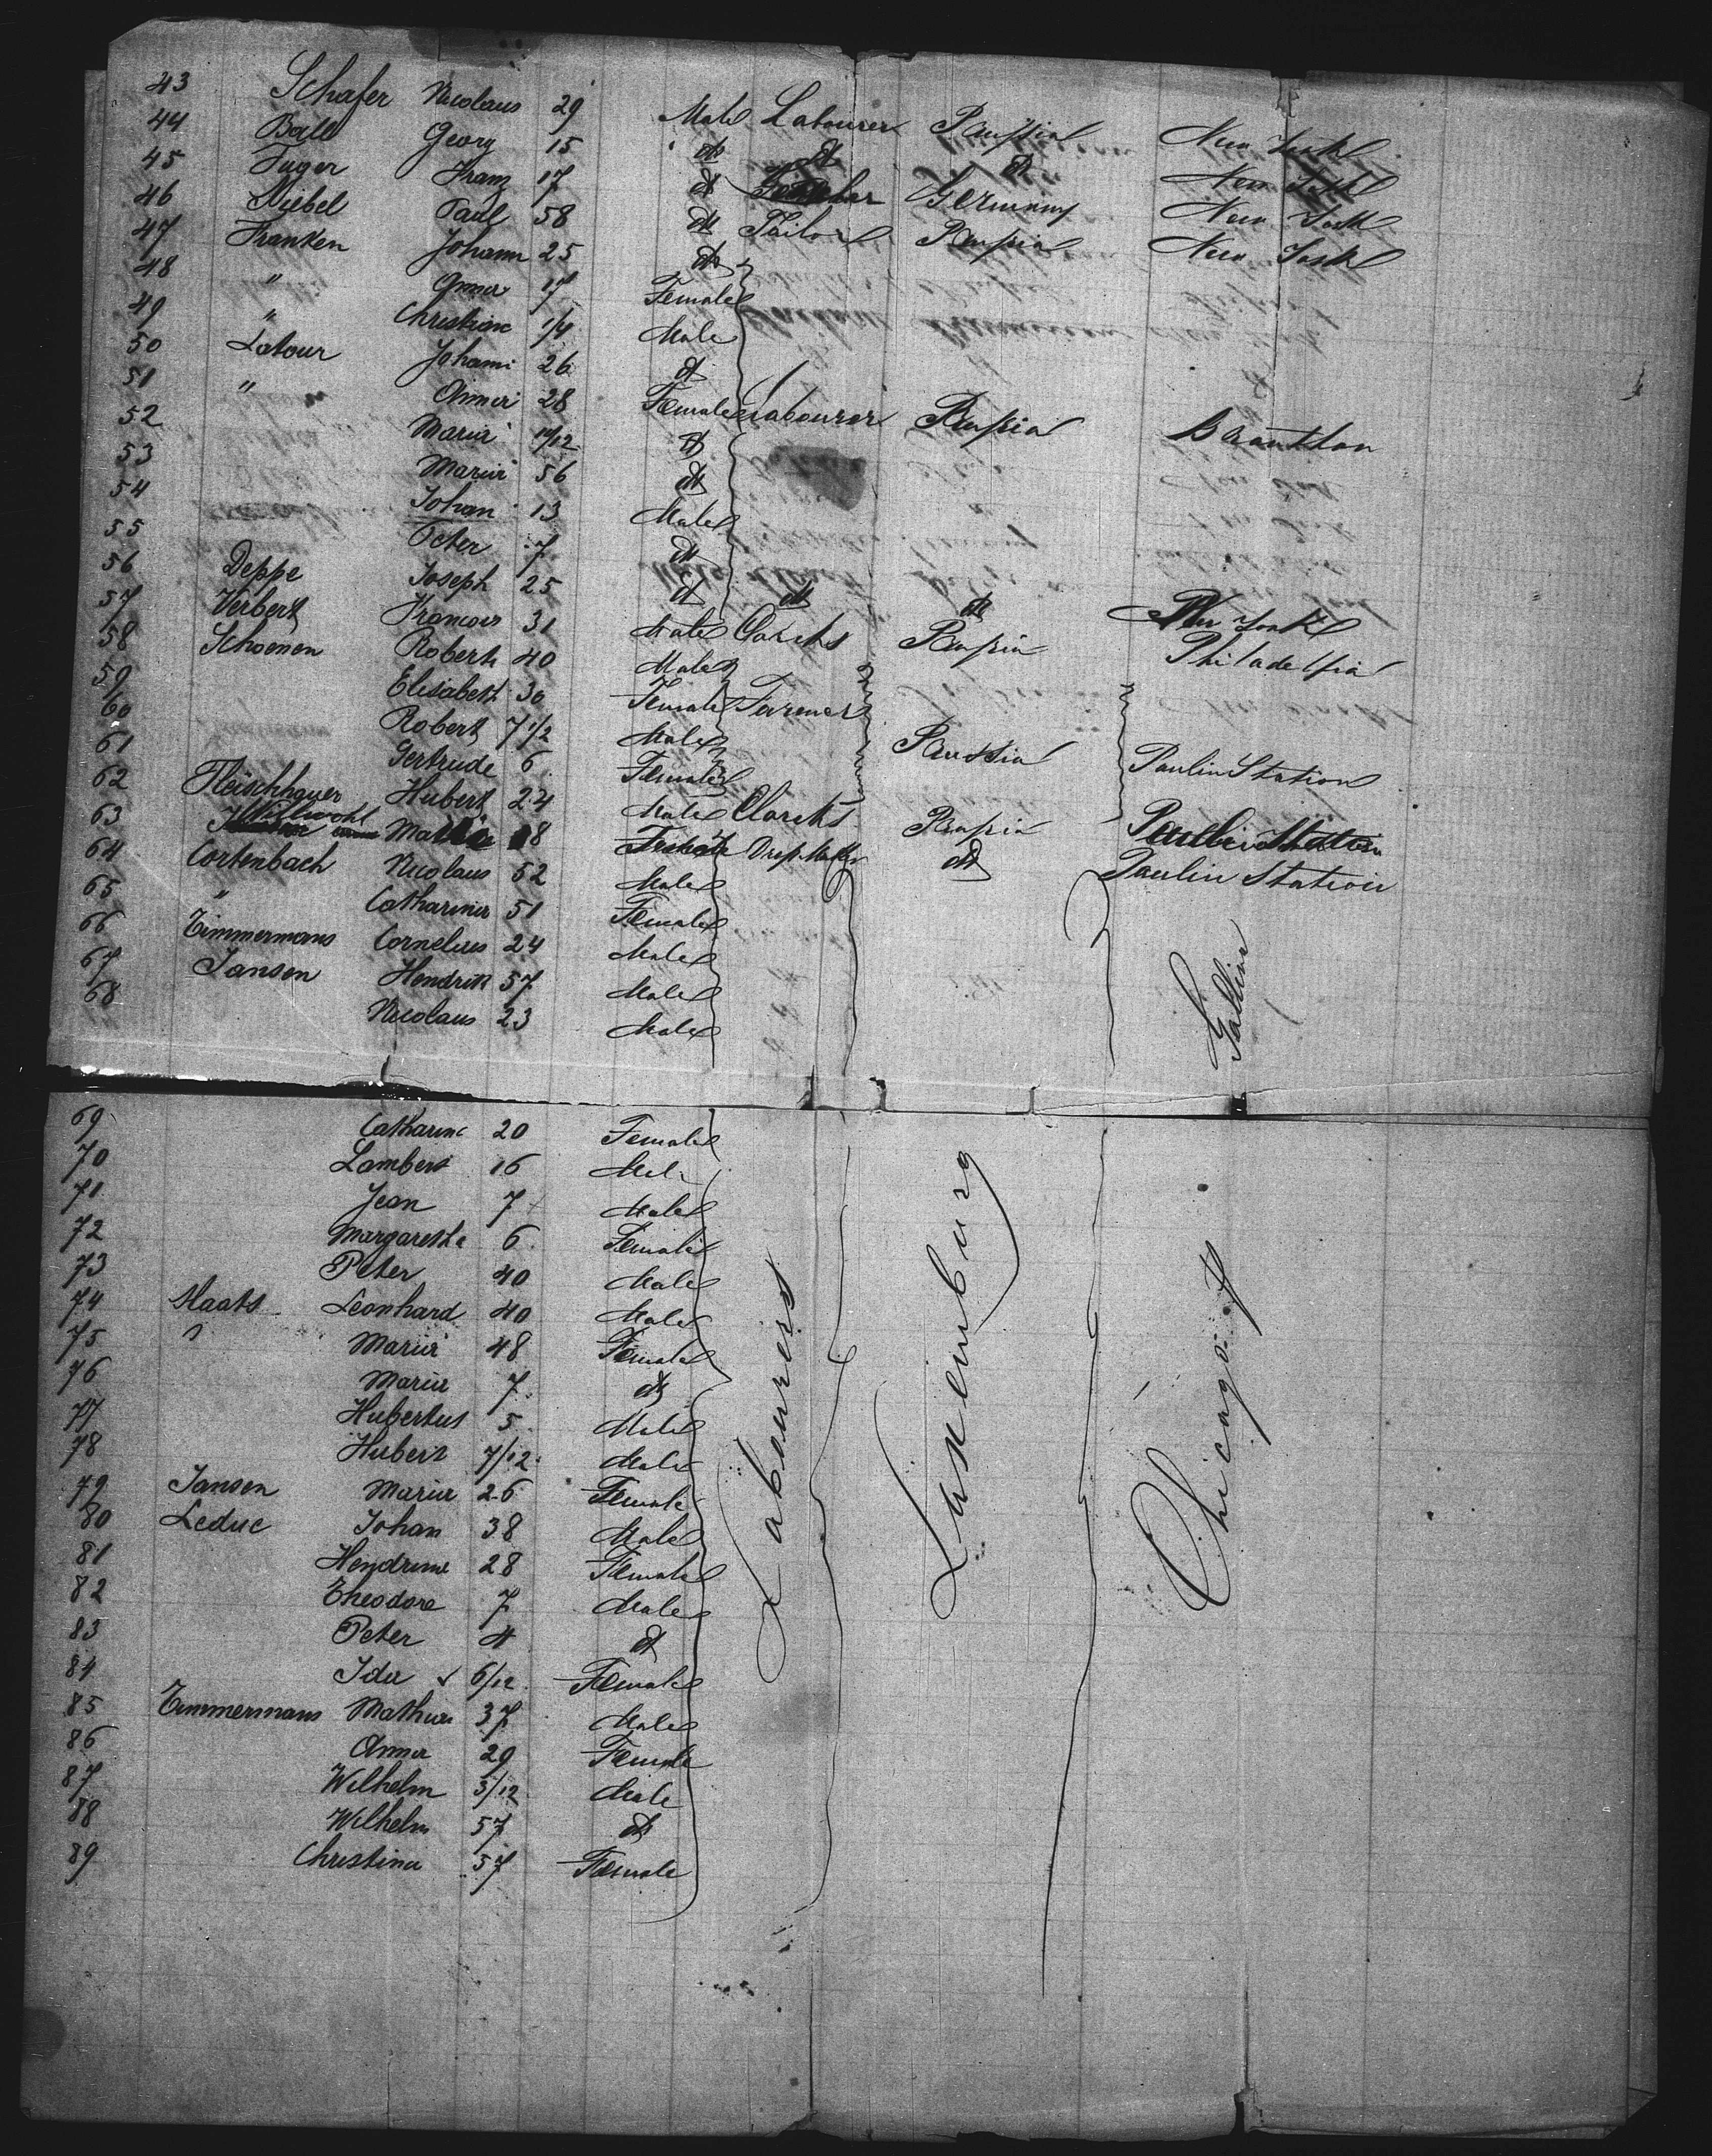 43 Schafer Nicolaus 29 Male Labourer Prussia New York
44 Ball Georg 15 do do do New York
45 Fuger Franz 17 do Germany New York
46 Niebel Paul 58 do Tailor Prussia New York
47 Franken Johann 25 do
48 " Anna 17 Female
49 " Christian 1/4 Male
50 Latour Johann 26 do
51 " Anna 28 Female Labourer Prussia
52 Maria 11/12 do
53 Maria 56 do
54 Johan 13 Male
55 Peter 7 do
56 Deppe Joseph 25 do do do New York
57 Verbert Francois 31 Male Clarcks Prussia Philadelfia
58 Schoenen Robert 40 Male
59 Elisabeth 30 Female Farmer
60 Robert 7 1/2 Male Prussia Paulin Station
61 Gertrude 6 Female
62 Fleischhauer Hubert 24 Male Clarcks Prussia Paulin Station
63 Willwohl 8 do Paulin Station
64 Cortenbach Nicolaus 52 Male
65 " Catharina 51 Female
66 Timmermans Cornelius 24 Male
67 Jansen Hendrik 57 Male
68 Nicolaus 23 Male
69 Catharine 20 Female
70 Lambert 16 Male
71 Jean 7 Male
72 Margaretha 6 Female
73 Peter 40 Male
74 Maats Leonhard 40 Male
75 " Maria 48 Female
76 Maria 7 do
77 Hubertus 5 Male
78 Hubert 7/12 Male
79 Jansen Maria 26 Female
80 Leduc Johan 38 Male
81 Hendrine 28 Female
82 Theodore 7 Male
83 Peter 4 do
84 Ida 6/12 Female
85 Timmermans Mathias 37 Male
86 Anna 29 Female
87 Wilhelm 3/12 Male
88 Wilhelm 57 do
89 Christina 57 Female
Labourers
Luxemburg
Chicago